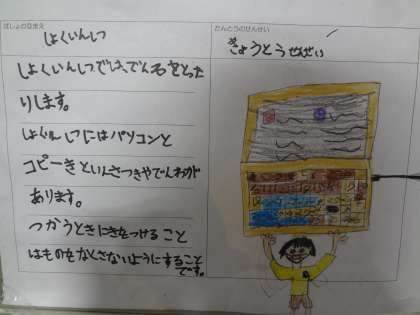 ばしょのなまえ
しょくいんしつ
たんとうのせんせい
きょうとうせんせい
しょくいんしつでは、でん名をとった
りします。
しょくいんしつにはパソコンと
コピーきといんさつきやでんわが
あります。
つかうときにきをつけること
はものをなくさないようにすること
です。